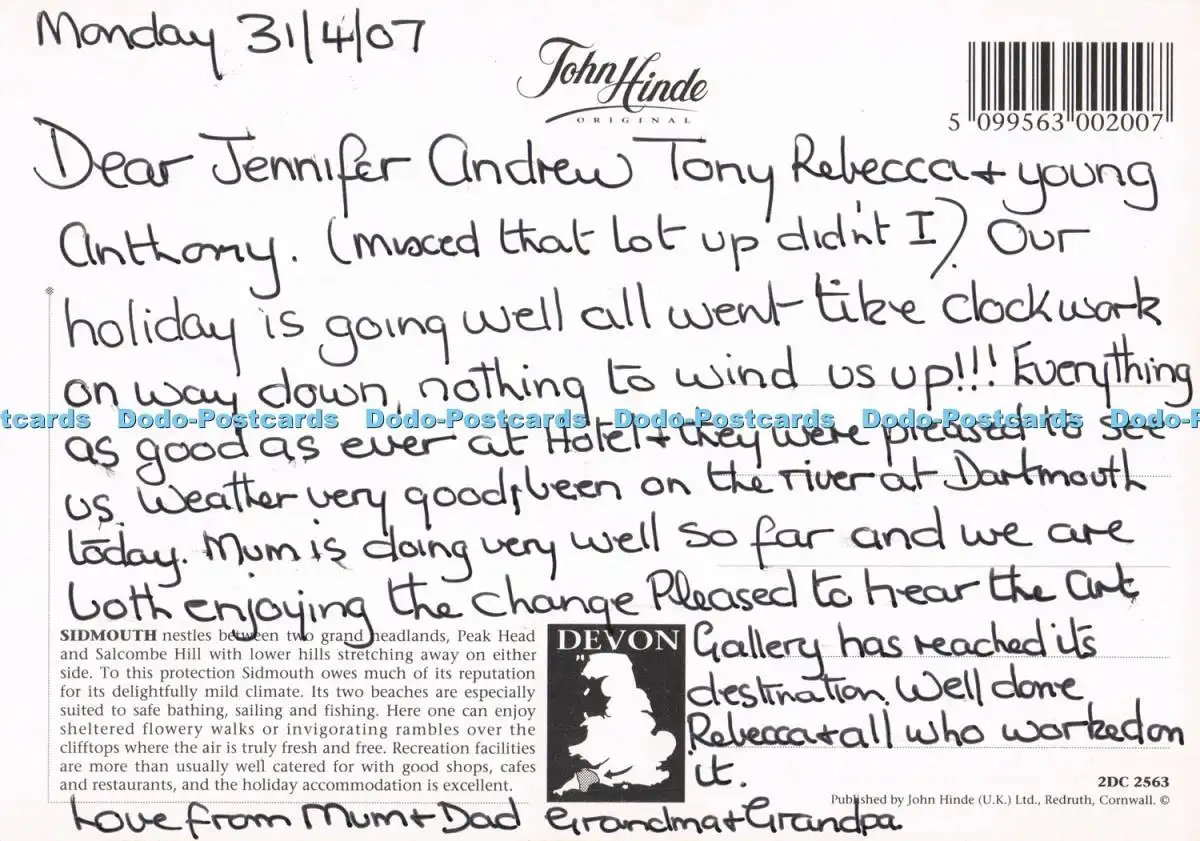 Monday 31/4/07
John Hinde
ORIGINAL
5 099563 002007
Dear Jennifer Andrew Tony Rebecca + young
Anthony. (musced that lot up did'nt I). Our
holiday is going well all went like clockwork
on way down, nothing to wind us up!!! Everything
tcards Dodo-Postcards Dodo-Postcards Dodo-Postcards Dodo-Postcards Dodo-P
as good as ever at Hotel + they were pleased to see
us. Weather very good, been on the river at Dartmouth
today. Mum is doing very well so far and we are
both enjoying the change Pleased to hear the art
SIDMOUTH nestles between two grand headlands, Peak Head
and Salcombe Hill with lower hills stretching away on either
side. To this protection Sidmouth owes much of its reputation
for its delightfully mild climate. Its two beaches are especially
suited to safe bathing, sailing and fishing. Here one can enjoy
sheltered flowery walks or invigorating rambles over the
clifftops where the air is truly fresh and free. Recreation facilities
are more than usually well catered for with good shops, cafes
and restaurants, and the holiday accommodation is excellent.
DEVON
Gallery has reached it's
destination. Well done
Rebecca + all who worked on
it.
2DC 2563
Published by John Hinde (U.K.) Ltd., Redruth, Cornwall. ©
Love from Mum + Dad Grandma + Grandpa.